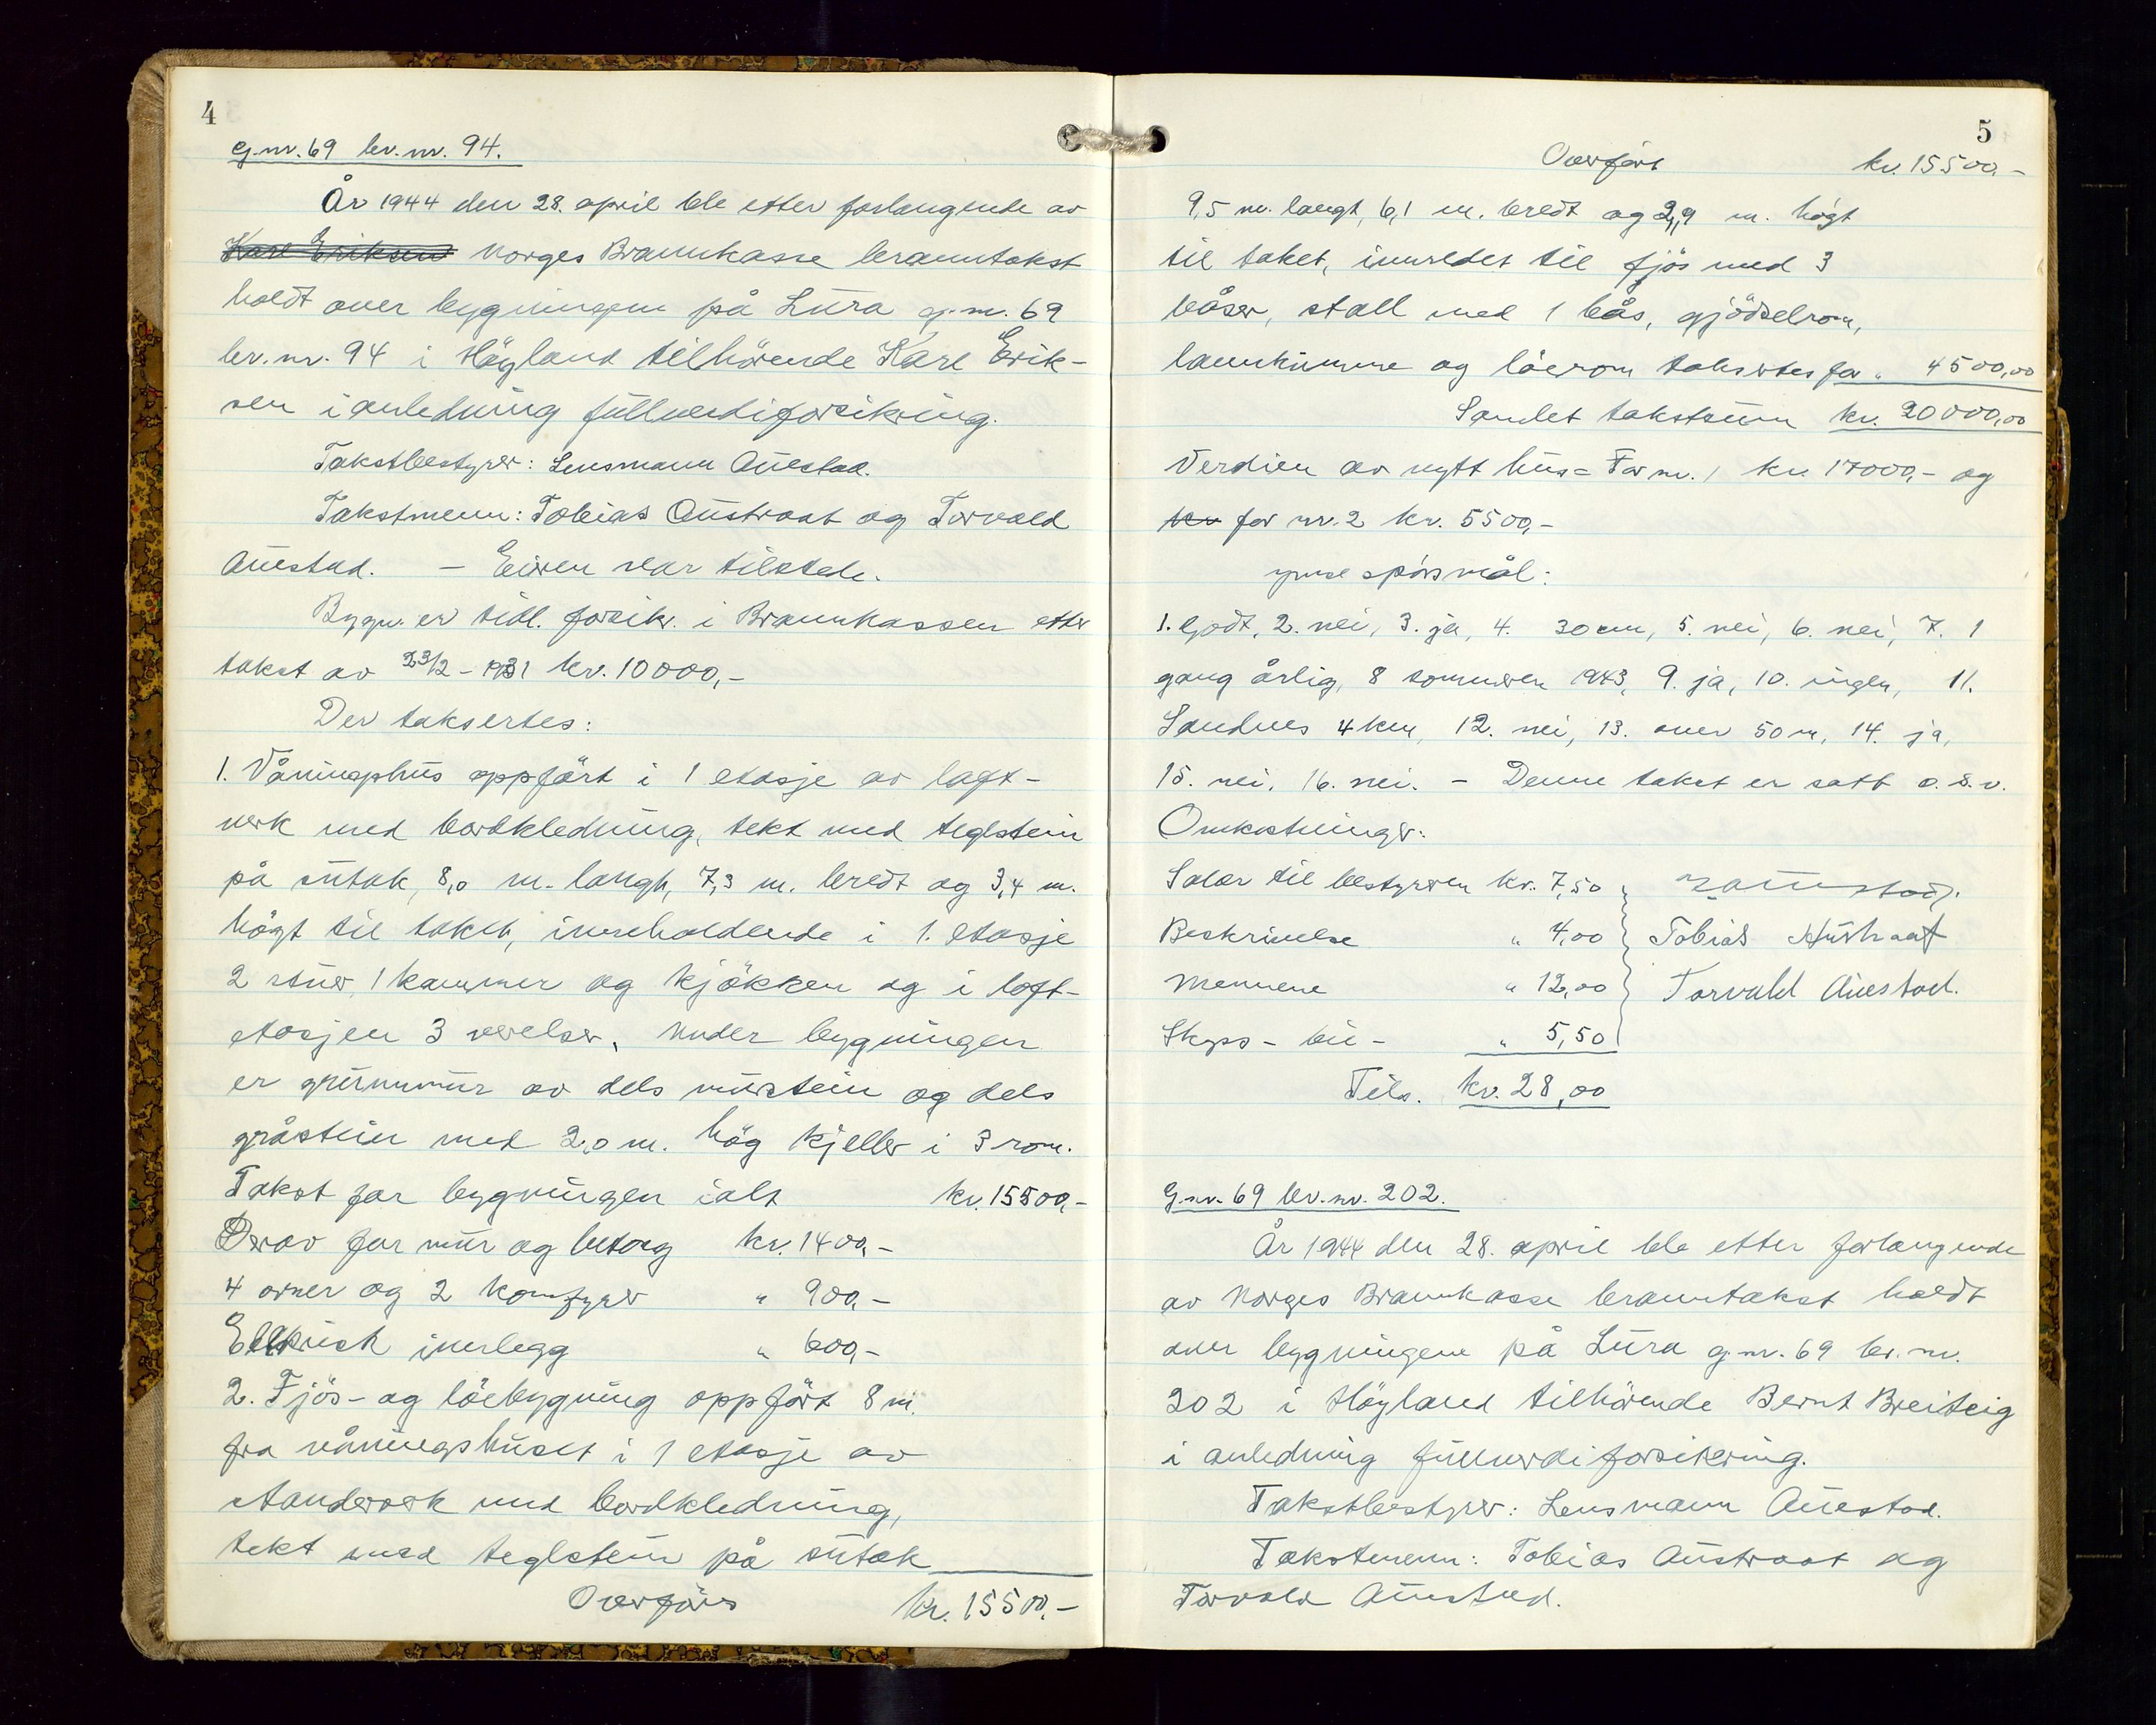 4
g.nr. 69 br.nr. 94.
År 1944 den 28. april ble etter forlangende av
Karl Eriksen Norges Brannkasse branntakst
holdt over bygningene på Lura g.nr. 69
br.nr. 94 i Høyland tilhørende Karl Erik-
sen i anledning fullverdiforsikring.
Takstbestyrer: Lensmann Auestad.
Takstmenn: Tobias Austraat og Torvald
Auestad. — Eieren var tilstede.
Bygn. er tidl. forsikr. i Brannkassen etter
takst av 23/2 - 1931 kr. 10000,-
Der taksertes:
1. Våningshus oppført i 1 etasje av laft-
verk med bordkledning, tekt med teglstein
på sutak, 8,0 m. langt, 7,3 m. bredt og 3,4 m.
høgt til taket, inneholdende i 1. etasje
2 stuer, 1 kammer og kjøkken og i loft-
etasjen 3 verelser. Under bygningen
er grunnmur av dels murstein og dels
gråstein med 2,0 m. høg kjeller i 3 rom.
Takst for bygningen ialt kr. 15500,-
Derav for mur og betong kr. 1400,-
4 ovner og 2 komfyrer " 900,-
Elektrisk innlegg " 600,-
2. Fjøs- og løebygning oppført 8 m.
fra våningshuset i 1 etasje av
standerverk med bordkledning,
tekt med teglstein på sutak
Overføres kr. 15500,-
5
Overført kr. 15500,-
9,5 m. langt, 6,1 m. bredt og 2,9 m. høgt
til taket, innredet til fjøs med 3
båser, stall med 1 bås, gjødselrom,
lannkumme og løerom taksertes for " 4500,00
Samlet takstsum kr. 20000,00
Verdien av nytt hus = For nr. 1 kr. 17000,- og
kr for nr. 2 kr. 5500,-
ymse spørsmål:
1. Godt, 2. nei, 3. ja, 4. 30 cm, 5. nei, 6. nei, 7. 1
gang årlig, 8 sommeren 1943, 9. ja, 10. ingen, 11.
Sandnes 4 km, 12. nei, 13. over 50 m, 14. ja,
15. nei, 16. nei. — Denne takst er satt o.s.v.
Omkostninger:
Salær til bestyreren kr. 7,50 Auestad.
Beskrivelse " 4,00 Tobias Austraat
Mennene " 12,00 Torvald Auestad.
Skyss - bil - " 5,50
Tils. kr. 28,00
G.nr. 69 br.nr. 202.
År 1944 den 28. april ble etter forlangende
av Norges Brannkasse branntakst holdt
over bygningene på Lura g.nr. 69 br.nr.
202 i Høyland tilhørende Bernt Breiteig
i anledning fullverdiforsikring.
Takstbestyrer: Lensmann Auestad.
Takstmenn: Tobias Austraat og
Torvald Auestad.